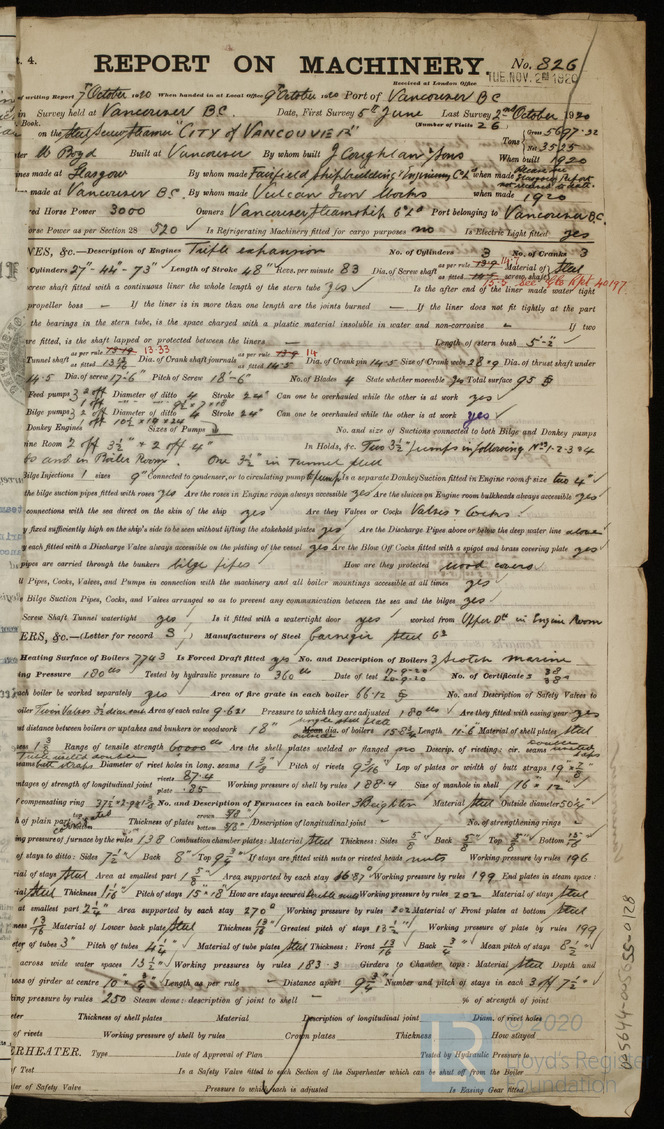 t. 4.
REPORT ON MACHINERY. No. 826
Received at London Office TUE. NOV. 2nd 1920
of writing Report 7th October 1920 When handed in at Local Office 9th October 1920 Port of Vancouver BC
in Survey held at Vancouver B.C. Date, First Survey 5th June Last Survey 2nd October 1920
Book. (Number of Visits 26
on the Steel Screw Steamer "CITY OF VANCOUVER" Tons Gross 5697.32 Net 3525
ter W Boyd Built at Vancouver By whom built J Coughlan & Sons When built 1920
nes made at Glasgow By whom made Fairfield Shipbuilding & Engineering Co Ld when made
made at Vancouver B.C. By whom made Vulcan Iron Works when made 1920
ed Horse Power 3000 Owners Vancouver Steamship Co Ld Port belonging to Vancouver BC.
orse Power as per Section 28 520 Is Refrigerating Machinery fitted for cargo purposes no Is Electric Light fitted yes
NES, &c.—Description of Engines Triple expansion No. of Cylinders 3 No. of Cranks 3
Cylinders 27"-44"-73" Length of Stroke 48" Revs. per minute 83 Dia. of Screw shaft as per rule as fitted Material of screw shaft Steel
screw shaft fitted with a continuous liner the whole length of the stern tube yes Is the after end of the liner made water tight
propeller boss — If the liner is in more than one length are the joints burned — If the liner does not fit tightly at the part
the bearings in the stern tube, is the space charged with a plastic material insoluble in water and non-corrosive — If two
are fitted, is the shaft lapped or protected between the liners — Length of stern bush 5'-"
Tunnel shaft as per rule 13.33 as fitted Dia. of Crank shaft journals as per rule 14 as fitted 14.5 Dia. of Crank pin 14.5 Size of Crank webs 28 x 9 Dia. of thrust shaft under
14.5 Dia. of screw 17'-6" Pitch of Screw 18'-6" No. of Blades 4 State whether moveable yes Total surface 95
Feed pumps 2 off Diameter of ditto 4 Stroke 24" Can one be overhauled while the other is at work yes
Bilge pumps 2 off Diameter of ditto 4 Stroke 24" Can one be overhauled while the other is at work yes
Donkey Engines Sizes of Pumps No. and size of Suctions connected to both Bilge and Donkey pumps
ine Room 2 off 3½" & 2 off 4" In Holds, &c. Two 3½" pumps in following Nos 1-2-3 & 4
and in Boiler Room. One 3½" in tunnel
Bilge Injections 1 sizes 9" Connected to condenser, or to circulating pump Is a separate Donkey Suction fitted in Engine room & size two 4"
the bilge suction pipes fitted with roses yes Are the roses in Engine room always accessible yes Are the sluices on Engine room bulkheads always accessible yes
connections with the sea direct on the skin of the ship yes Are they Valves or Cocks Valves & Cocks
y fixed sufficiently high on the ship's side to be seen without lifting the stokehold plates yes Are the Discharge Pipes above or below the deep water line above
y each fitted with a Discharge Valve always accessible on the plating of the vessel yes Are the Blow Off Cocks fitted with a spigot and brass covering plate yes
pipes are carried through the bunkers bilge pipes How are they protected wood covers
ll Pipes, Cocks, Valves, and Pumps in connection with the machinery and all boiler mountings accessible at all times yes
e Bilge Suction Pipes, Cocks, and Valves arranged so as to prevent any communication between the sea and the bilges yes
Screw Shaft Tunnel watertight yes Is it fitted with a watertight door yes worked from Upper Dk in Engine Room
ERS, &c.—(Letter for record 3 ) Manufacturers of Steel Carnegie Steel Co
Heating Surface of Boilers 7743 Is Forced Draft fitted yes No. and Description of Boilers 3 Scotch marine
ing Pressure 180 lbs Tested by hydraulic pressure to 360 lbs Date of test No. of Certificate
ach boiler be worked separately yes Area of fire grate in each boiler 66.12 No. and Description of Safety Valves to
oiler Twin Valves Area of each valve 9.621 Pressure to which they are adjusted 180 lbs Are they fitted with easing gear yes
st distance between boilers or uptakes and bunkers or woodwork 18" dia. of boilers Length 11-6 Material of shell plates Steel
ness 1 3/8 Range of tensile strength 60000 lbs Are the shell plates welded or flanged no Descrip. of riveting: cir. seams
seams butt straps Diameter of rivet holes in long. seams Pitch of rivets 9 3/16" Lap of plates or width of butt straps
ntages of strength of longitudinal joint rivets 87.4 plate .85 Working pressure of shell by rules 188.4 Size of manhole in shell 16" x 12"
compensating ring No. and Description of Furnaces in each boiler 3 Deighton Material Steel Outside diameter
h of plain part top bottom Thickness of plates crown bottom Description of longitudinal joint — No. of strengthening rings —
ing pressure of furnace by the rules 138 Combustion chamber plates: Material Steel Thickness: Sides 5/8" Back 5/8" Top 5/8" Bottom 15/16"
of stays to ditto: Sides 7½" Back 8" Top 9¾" If stays are fitted with nuts or riveted heads nuts Working pressure by rules 196
ial of stays Steel Area at smallest part Area supported by each stay Working pressure by rules 199 End plates in steam space:
rial Steel Thickness 1 1/16 Pitch of stays 15" x 18" How are stays secured Double nuts Working pressure by rules 202 Material of stays Steel
at smallest part 2¼" Area supported by each stay 270 Working pressure by rules 202 Material of Front plates at bottom Steel
ness 13/16 Material of Lower back plate Steel Thickness 13/16" Greatest pitch of stays 13½" Working pressure of plate by rules 199
eter of tubes 3" Pitch of tubes 4¼" Material of tube plates Steel Thickness: Front 13/16 Back 3/4" Mean pitch of stays 8½"
across wide water spaces 13½" Working pressures by rules 183.3 Girders to Chamber tops: Material Steel Depth and
ess of girder at centre Length as per rule — Distance apart 9¾" Number and pitch of stays in each 3 off 7½"
king pressure by rules 250 Steam dome: description of joint to shell — % of strength of joint
eter Thickness of shell plates Material Description of longitudinal joint Diam. of rivet holes
of rivets Working pressure of shell by rules Crown plates Thickness How stayed
ERHEATER. Type Date of Approval of Plan Tested by Hydraulic Pressure to
of Test Is a Safety Valve fitted to each Section of the Superheater which can be shut off from the Boiler
ter of Safety Valve Pressure to which each is adjusted Is Easing Gear fitted
© 2020
Lloyd's Register
Foundation